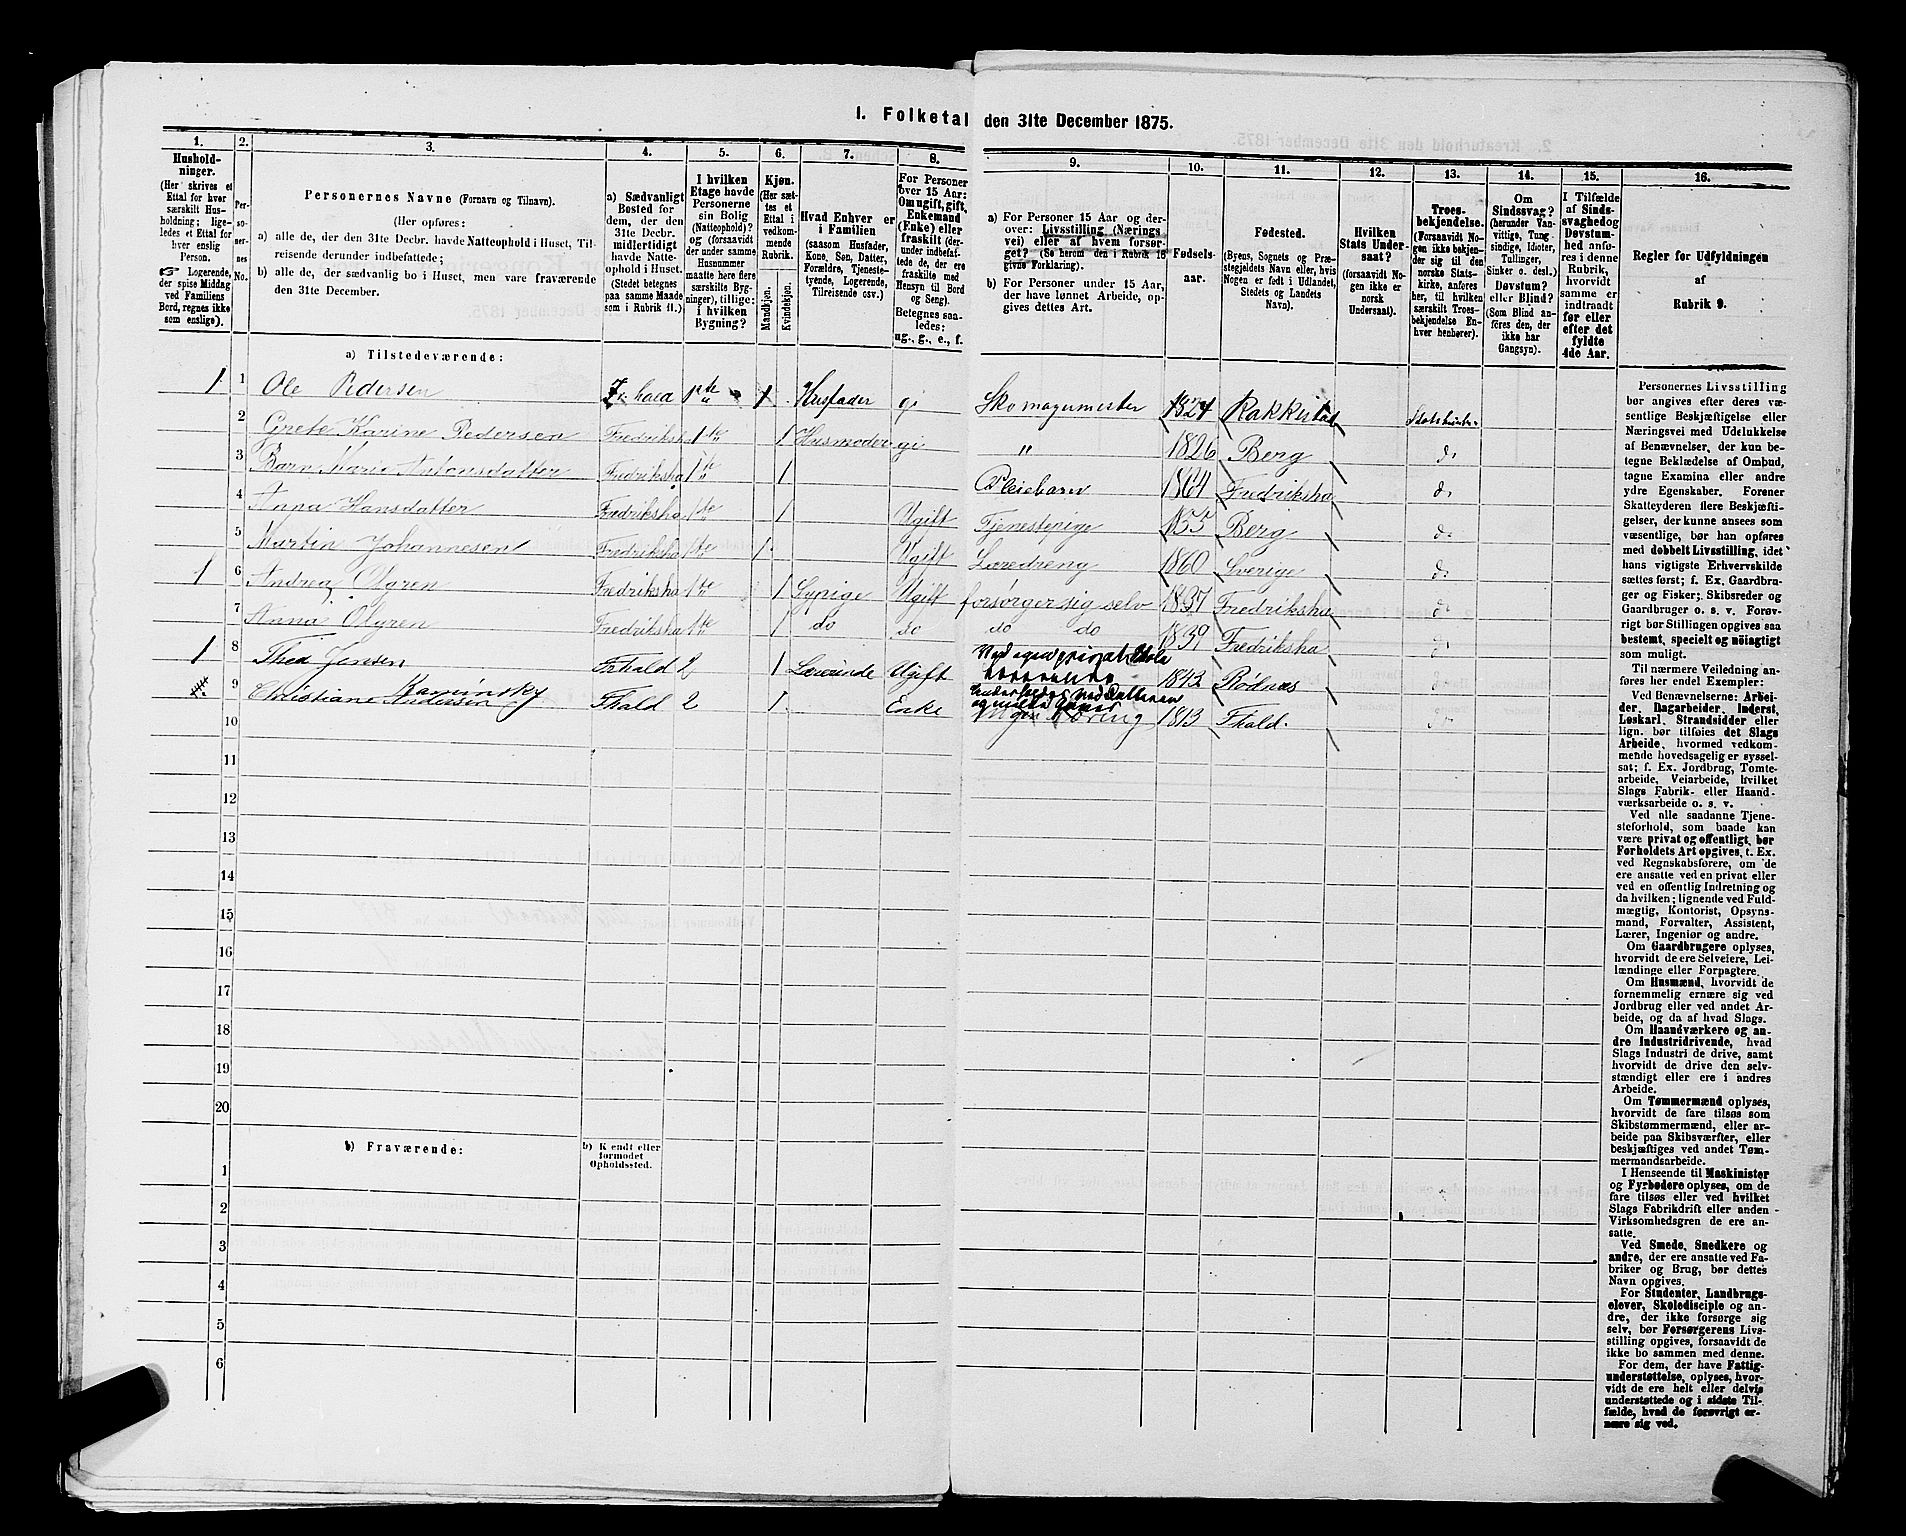 I. Folketal den 31te December 1875.
1. 2. 3. 4. 5. 6. 7. 8. 9. 10. 11. 12. 13. 14. 15. 16.
Hushold-
ninger.
(Her skrives et
Ettal for hver
særskilt Hus-
holdning; lige-
ledes et Ettal for
hver enslig
Person.
☞ Logerende,
der spise Middag
ved Familiens
Bord, regnes ikke
som enslige).
Per-
so-
ner-
nes
No.
Personernes Navne (Fornavn og Tilnavn).
(Her opføres:
a) alle de, der den 31te Decbr. havde Natteophold i Huset, Til-
reisende derunder indbefattede;
b) alle de, der sædvanlig bo i Huset, men vare fraværende
den 31te December.
a) Sædvanligt
Bosted for
dem, der den
31te Decbr.
midlertidigt
havde Natte-
ophold i Huset.
(Stedet betegnes
paa samme Maade
som i Rubrik 11.)
I hvilken
Etage havde
Personerne
sin Bolig
(Natteophold)?
og (forsaavidt
der under samme
Husnummer
maatte høre flere
særskilte Byg-
ninger), tillige:
i hvilken
Bygning?
Kjøn.
(Her sæt-
tes et
Ettal i
vedkom-
mende
Rubrik.
Mandkjøn.
Kvindekjøn.
Hvad Enhver er
i Familien
(saasom Husfader,
Kone, Søn, Datter,
Forældre, Tjeneste-
tyende, Logerende,
Tilreisende osv.)
For Personer
over 15 Aar:
Om ugift, gift,
Enkemand
(Enke) eller
fraskilt (der-
under indbefat-
tede de, der ere
fraskilte med
Hensyn til Bord
og Seng).
Betegnes saa-
ledes:
ug., g., e., f.
a) For Personer 15 Aar og der-
over: Livsstilling (Nærings
vei) eller af hvem forsør-
get? (Se herom den i Rubrik 16
givne Forklaring).
b) For Personer under 15 Aar,
der have lønnet Arbeide, op-
gives dettes Art.
Fødsels-
aar.
Fødested.
(Byens, Sognets og Præ-
stegjeldets Navn eller, hvis
Nogen er født i Udlandet,
Stedets og Landets
Navn).
Hvilken
Stats Under-
saat?
(forsaavidt No-
gen ikke er
norsk
Undersaat).
Troes-
bekjendelse.
(Forsaavidt No-
gen ikke bekjen-
der sig til den
norske Stats-
kirke, anføres
her, til hvilken
særskilt Troes-
bekjendelse En-
hver henhører).
Om
Sindssvag?
(herunder Van-
vittige, Tung-
sindige, Idioter,
Tullinger,
Sinker o. desl.)
Døvstum?
eller Blind?
(Som Blind an-
føres den, der
ikke har
Gangsyn).
I Tilfælde
af Sinds-
svaghed og
Døvstum-
hed anfø-
res i denne
Rubrik,
hvorvidt
samme er
indtraadt
før eller
efter det
fyldte
4de Aar.
Regler for Udfyldningen
af
Rubrik 9.
a) Tilstedeværende:
1 1 Ole Pedersen F.hald 1ste 1 Husfader g. Skomagermester 1824 Rakkestad Statskirken
2 Grete Karine Pedersen Fredriksha 1ste 1 Husmoder gi " 1826 Berg do
3 Barn Marie Antonsdatter Fredriksha 1ste 1 Pleiebarn 1864 Fredriksha do
4 Anna Hansdatter Fredriksha 1ste 1 Ugift Tjenestepige 1855 Berg do
5 Martin Johannesen Fredriksha 1ste 1 Ugift Læredreng 1860 Sverige do
1 6 Andrea Olgren Fredriksha 1ste 1 Sypige Ugift forsørger sig selv 1837 Fredriksha do
7 Anna Olgren Fredriksha 1ste 1 do do do do 1839 Fredriksha do
1 8 Thea Jensen Frhald 2 1 Lærerinde Ugift Ved egen privat Skole 1843 Rødnæs
9 Christiane Andersen Kaminsky Fhald 2 1 Enke Underholdes ved Datteren
Ingen Næring 1813 Fhald.
10
11
12
13
14
15
16
17
18
19
20
b) Fraværende:
b) Kjendt eller
formodet
Opholdssted.
1
2
3
4
5
6
Personernes Livsstilling
bør angives efter deres væ-
sentlige Beskjæftigelse eller
Næringsvei med Udelukkelse
af Benævnelser, der kun be-
tegne Beklædelse af Ombud,
tagne Examina eller andre
ydre Egenskaber. Forener
Skatteyderen flere Beskjæfti-
gelser, der kunne ansees som
væsentlige, bør han opføres
med dobbelt Livsstilling, idet
hans vigtigste Erhvervskilde
sættes først; f. Ex. Gaardbru-
ger og Fisker; Skibsreder og
Gaardbruger o. s. v. Forøv-
rigt bør Stillingen opgives saa
bestemt, specielt og nöiagtigt
som muligt.
Til nærmere Veiledning an-
føres her endel Exempler:
Ved Benævnelserne: Arbei-
der, Dagarbeider, Inderst,
Løskarl, Strandsidder eller
lign. bør tilføies det Slags
Arbeide, hvormed vedkom-
mende hovedsagelig er syssel-
sat; f. Ex. Jordbrug, Tomte-
arbeide, Veiarbeide, hvilket
Slags Fabrik- eller Haand-
værksarbeide o. s. v.
Ved alle saadanne Tjene-
steforhold, som baade kan
være privat og offentligt, bør
Forholdets Art opgives, t. Ex.
ved Regnskabsførere, om de
ere ansatte ved en privat eller
ved en offentlig Indretning og
da hvilken; lignende ved Fuld-
mægtig, Kontorist, Opsyns-
mand, Forvalter, Assistent,
Lærer, Ingeniør og andre.
Om Gaardbrugere oplyses,
hvorvidt de ere Selveiere, Lei-
lændinge eller Forpagtere.
Om Husmænd, hvorvidt de
fornemmelig ernære sig ved
Jordbrug eller ved andet Ar-
beide, og da af hvad Slags.
Om Haandværkere og an-
dre Industridrivende, hvad
Slags Industri de drive, samt
hvorvidt de drive den selv-
stændigt eller ere i andres
Arbeide.
Om Tømmermænd oplyses,
hvorvidt de fare tilsøs som
Skibstømmermænd, eller ar-
beide paa Skibsværfter, eller
beskjæftiges ved andet Tøm-
mermandsarbeide.
I Henseende til Maskinister
og Fyrbødere oplyses, om de
fare tilsøs eller ved hvilket
Slags Fabrikdrift eller anden
Virksomhedsgren de ere an-
satte.
Ved Smede, Snedkere og
andre, der ere ansatte ved Fa-
briker og Brug, bør dettes
Navn opgives.
For Studenter, Landbrugs-
elever, Skoledisciple og an-
dre, der ikke forsørge sig
selv, bør Forsørgerens Livs-
stilling opgives, forsaavidt de
ikke bo sammen med denne.
For dem, der have Fattig-
understøttelse, oplyses, hvor-
vidt de ere helt eller delvis
understøttede og i sidste Til-
fælde, hvad de forøvrigt er-
nære sig ved.